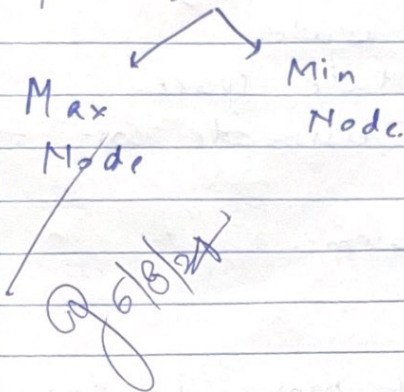 Max
Node
Min
Node.
6/8/24